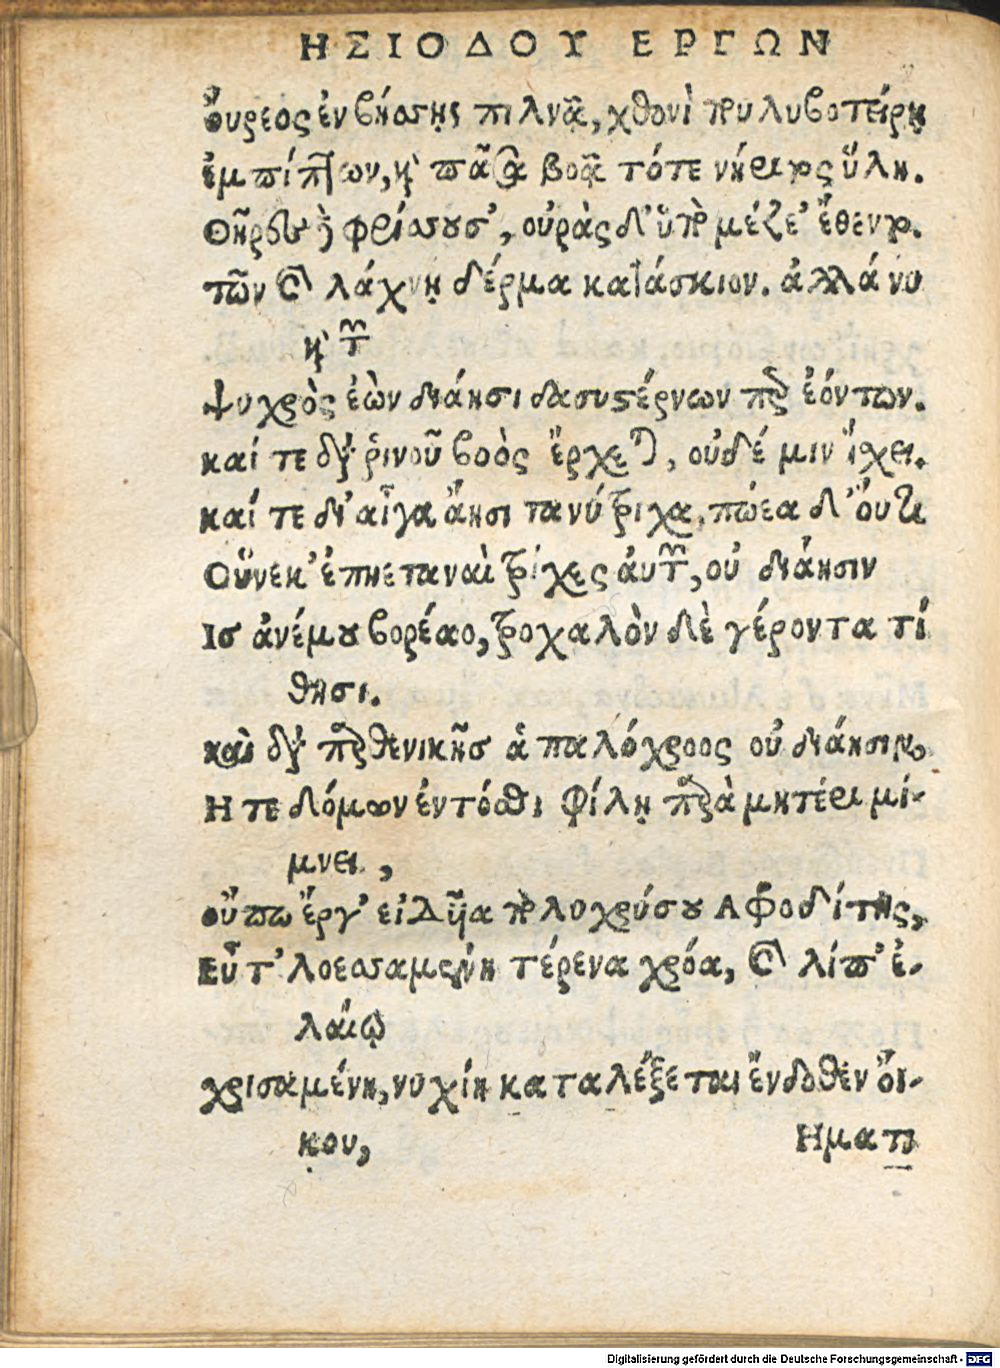 ΗΣΙΟΔΟΥ ΕΡΓΩΝ
ὄυρεος ἐν βήσσῃς πιλνᾷ, χθονὶ πουλυβοτείρῃ
ἐμπίπτων, καὶ πᾶσα βοᾷ τότε νήριτος ὕλη.
Θῆρες δὲ φρίσσουσ', οὐρὰς δ' ὑπὸ μέζε' ἔθεντο.
τῶν καὶ λάχνῃ δέρμα κατάσκιον. ἀλλά νυ
καὶ τῶν
ψυχρὸς ἐὼν διάησι δασυστέρνων περ ἐόντων.
καί τε διὰ ῥινοῦ βοὸς ἔρχεται, οὐδέ μιν ἴχει.
καί τε δι' αἶγα ἄησι τανύτριχα, πώεα δ' ὄυτι
Οὕνεκ' ἐπηεταναὶ τρίχες ἀυτῶν, οὐ διάησιν
Ισ ἀνέμου βορέαο, τροχαλὸν δὲ γέροντα τί
θησι.
καὶ διὰ παρθενικῆσ ἁπαλόχροος οὐ διάησιν,
Η τε δόμων ἐντόσθι φίλῃ παρὰ μητέρι μί-
μνει,
οὔπω ἔργ' εἰδῆα πολυχρύσου Αφροδίτης,
Εὖτ' λοεσσαμένη τέρενα χρόα, καὶ λίπ' ἐ-
λαίῳ
χρισαμένη, νυχίη καταλέξεται ἔνδοθεν ὄι-
κου,
Ηματι
Digitalisierung gefördert durch die Deutsche Forschungsgemeinschaft - DFG